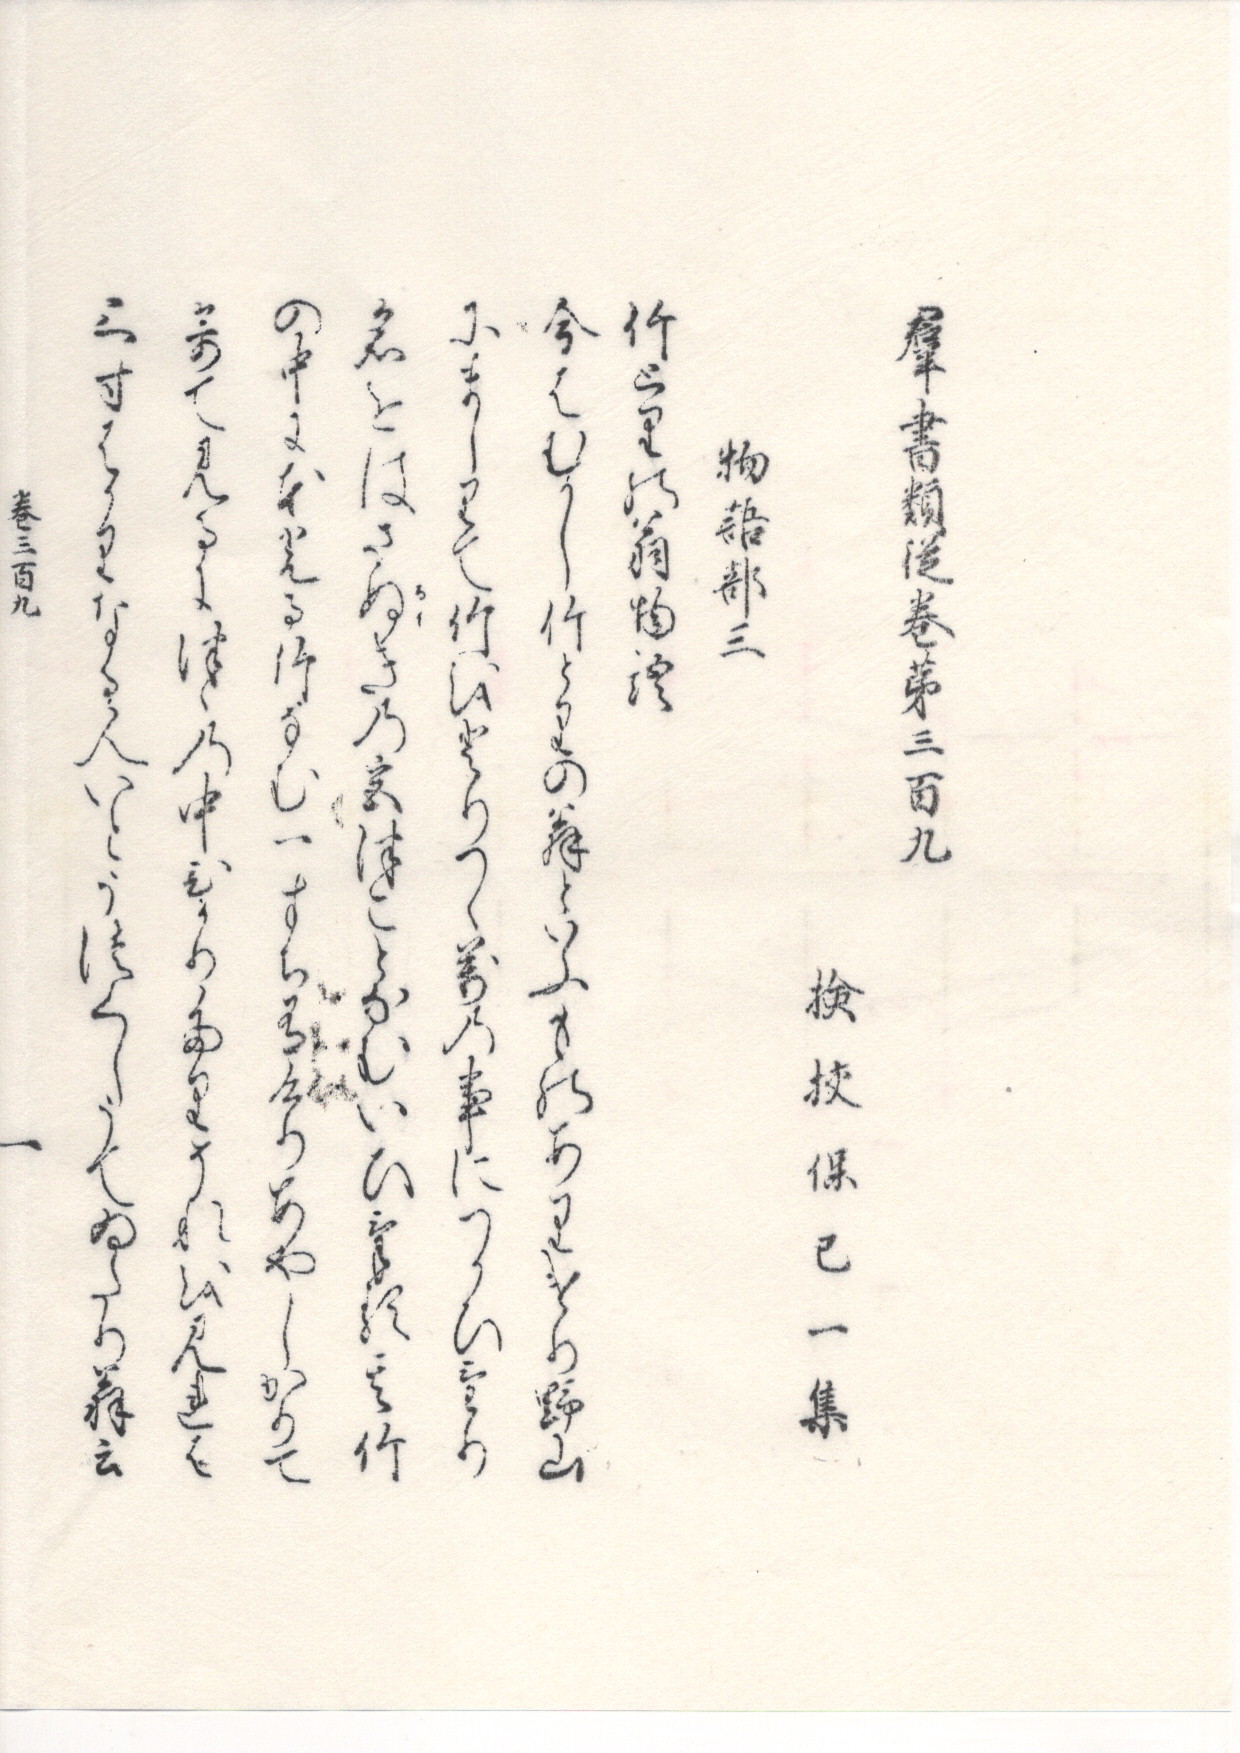 羣書類従巻第三百九
検挍保己一集
物語部三
竹とりの翁物語
今はむかし竹とりの翁といふものありけり野山
にましりて竹をとりつゝ萬の事につかひけり
名をはさぬきの宮つことなむいひける其竹
の中に本光る竹なむ一すち有けりあやしかりて
寄て見るにつゝの中ひかりたりそれを見れは
三寸はかりなる人いとうつくしうてゐたり翁云
巻三百九
一